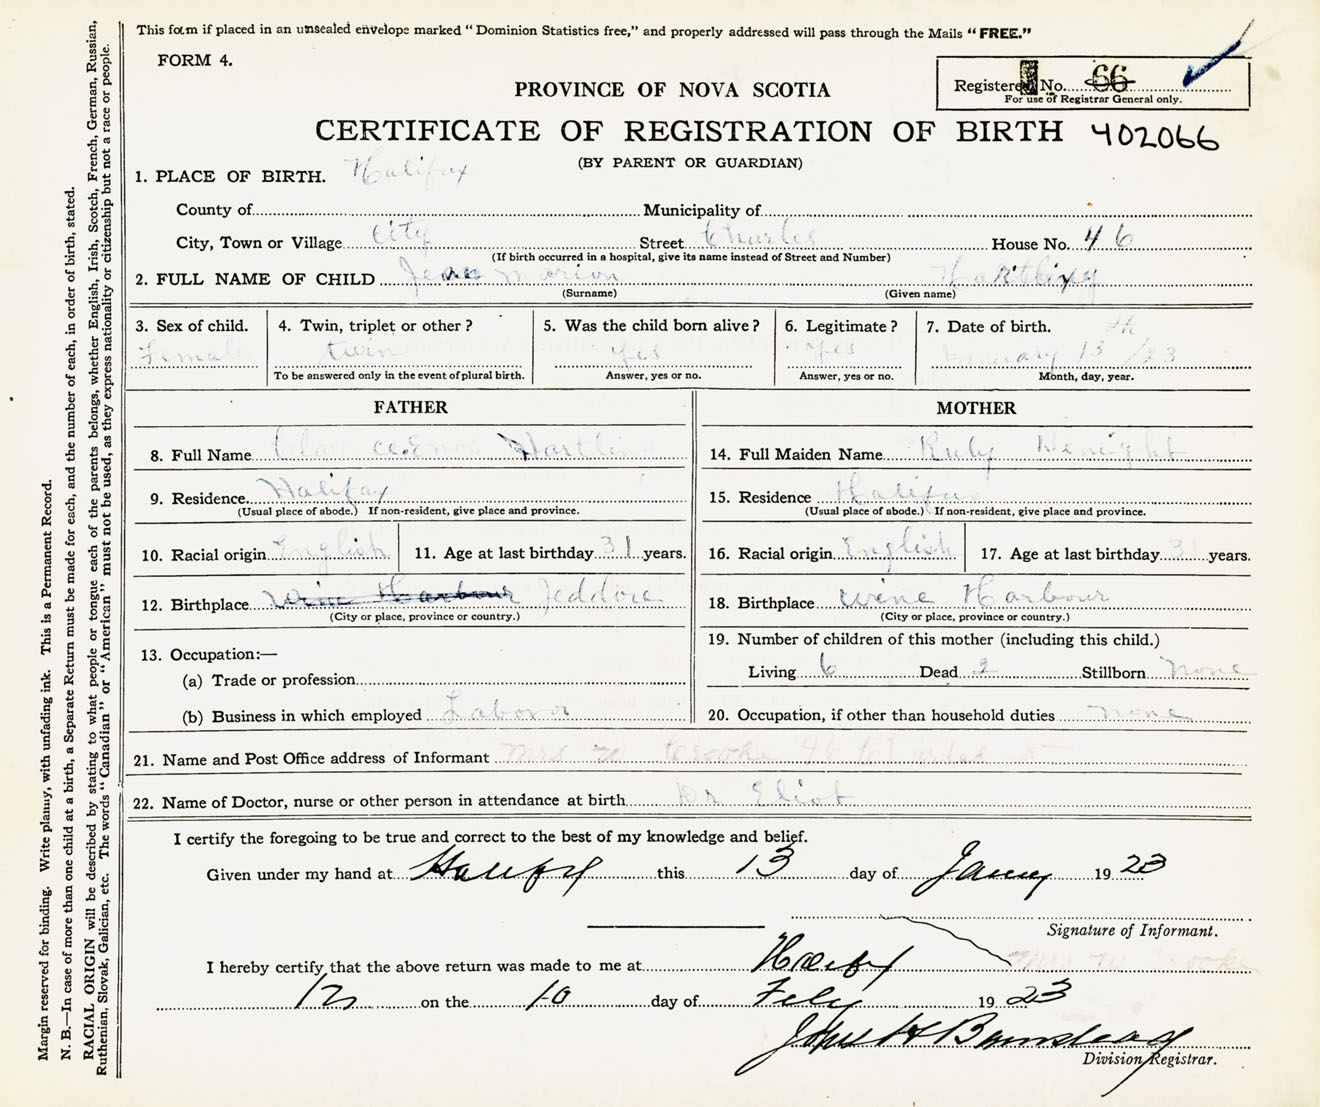 This form if placed in an unsealed envelope marked “Dominion Statistics free,” and properly addressed will pass through the Mails “FREE.”
FORM 4.
Registered No. 66
For use of Registrar General only.
PROVINCE OF NOVA SCOTIA
CERTIFICATE OF REGISTRATION OF BIRTH 402066
(BY PARENT OR GUARDIAN)
1. PLACE OF BIRTH. Halifax
County of Municipality of
City, Town or Village City Street Charles House No. 46
(If birth occurred in a hospital, give its name instead of Street and Number)
2. FULL NAME OF CHILD Jean Marion Hartling
(Surname) (Given name)
3. Sex of child. 4. Twin, triplet or other? 5. Was the child born alive? 6. Legitimate? 7. Date of birth.
Female twin Yes Yes January 13th /23
To be answered only in the event of plural birth. Answer, yes or no. Answer, yes or no. Month, day, year.
FATHER
8. Full Name Clarence Enos Hartling
9. Residence. Halifax
(Usual place of abode.) If non-resident, give place and province.
10. Racial origin English 11. Age at last birthday 31 years.
12. Birthplace Wine Harbour Jeddore
(City or place, province or country.)
13. Occupation:—
(a) Trade or profession
(b) Business in which employed Labovor
MOTHER
14. Full Maiden Name Ruby
15. Residence Halifax
(Usual place of abode.) If non-resident, give place and province.
16. Racial origin English 17. Age at last birthday years.
18. Birthplace Wine Harbour
(City or place, province or country.)
19. Number of children of this mother (including this child.)
Living 6 Dead 2 Stillborn None
20. Occupation, if other than household duties none
21. Name and Post Office address of Informant Mrs W Crooke 46 Charles St
22. Name of Doctor, nurse or other person in attendance at birth Dr Eliot
I certify the foregoing to be true and correct to the best of my knowledge and belief.
Given under my hand at Halifax this 13 day of Janry 1923
Signature of Informant.
Mrs W Crooke
I hereby certify that the above return was made to me at
on the 10 day of Feby 1923
Division Registrar.
Margin reserved for binding. Write plainly, with unfading ink. This is a Permanent Record.
N. B.—In case of more than one child at a birth, a Separate Return must be made for each, and the number of each, in order of birth, stated.
RACIAL ORIGIN will be described by stating to what people or tongue each of the parents belongs, whether English, Irish, Scotch, French, German, Russian,
Ruthenian, Slovak, Galician, etc. The words “Canadian” or “American” must not be used, as they express nationality or citizenship but not a race or people.